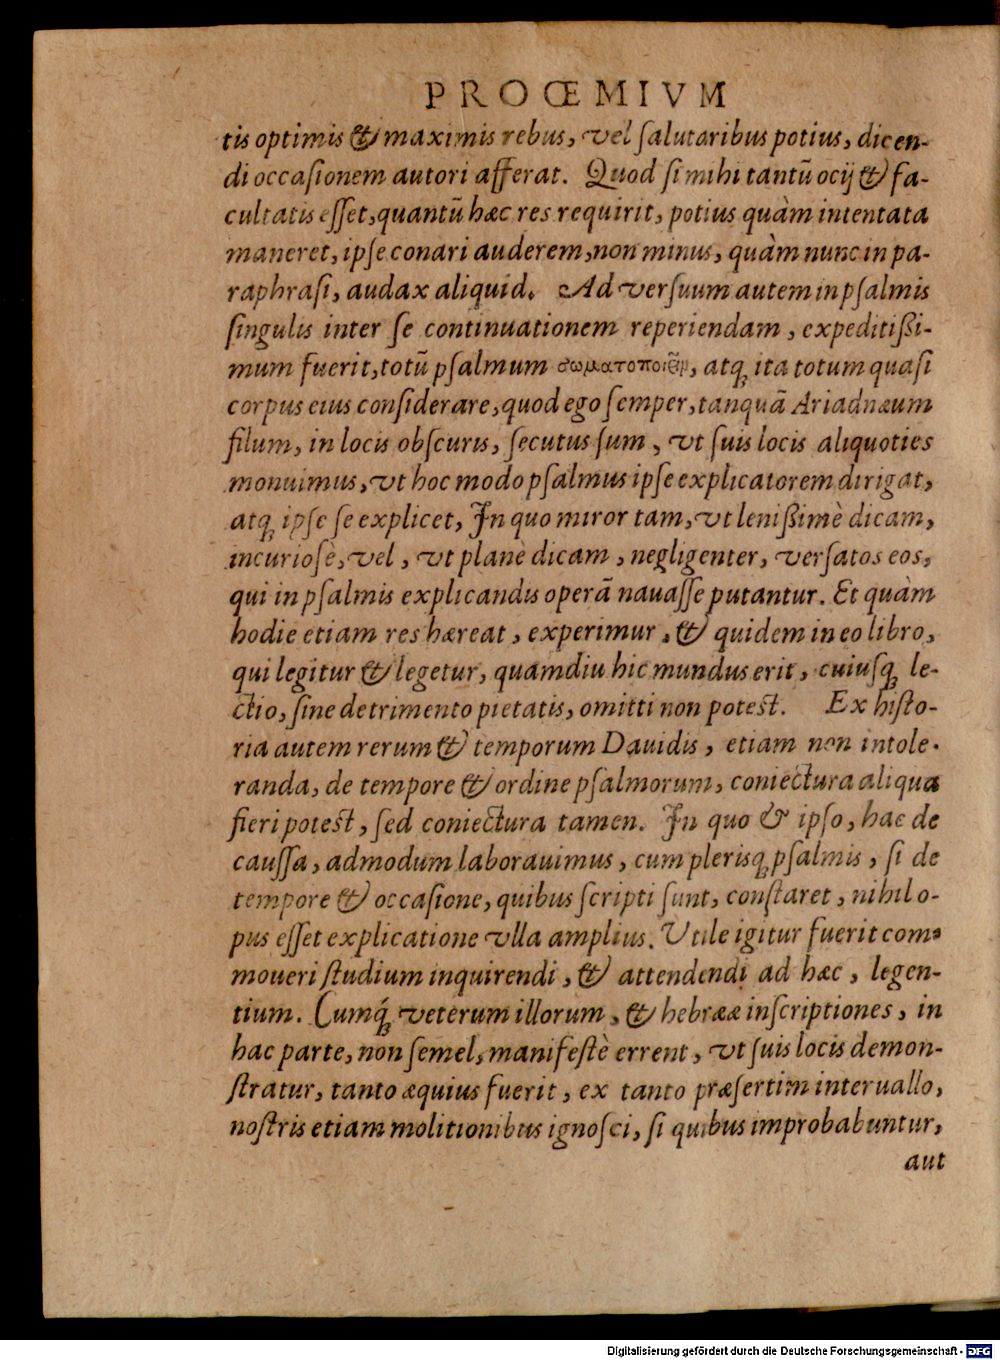 PROŒMIVM
tis optimis & maximis rebus, vel ſalutaribus potius, dicen-
di occaſionem autori afferat. Quod ſi mihi tantũ ocij & fa-
cultatis eſſet, quantũ hæc res requirit, potius quàm intentata
maneret, ipſe conari auderem, non minus, quàm nunc in pa-
raphraſi, audax aliquid. Ad verſuum autem in pſalmis
ſingulis inter ſe continuationem reperiendam, expeditiſsi-
mum fuerit, totũ pſalmum σωματοποιεῖν, atq; ita totum quaſi
corpus eius conſiderare, quod ego ſemper, tanquã Ariadnæum
filum, in locis obſcuris, ſecutus ſum, vt ſuis locis aliquoties
monuimus, vt hoc modo pſalmus ipſe explicatorem dirigat,
atq; ipſe ſe explicet, In quo miror tam, vt leniſsimè dicam,
incurioſè, vel, vt planè dicam, negligenter, verſatos eos,
qui in pſalmis explicandis operã nauaſſe putantur. Et quàm
hodie etiam res hæreat, experimur, & quidem in eo libro,
qui legitur & legetur, quamdiu hic mundus erit, cuiuſq; le-
ctio, ſine detrimento pietatis, omitti non potest. Ex hiſto-
ria autem rerum & temporum Dauidis, etiam non intole-
randa, de tempore & ordine pſalmorum, coniectura aliqua
fieri potest, ſed coniectura tamen. In quo & ipſo, hac de
cauſſa, admodum laborauimus, cum plerisq; pſalmis, ſi de
tempore & occaſione, quibus ſcripti ſunt, conſtaret, nihil o-
pus eſſet explicatione vlla amplius. Vtile igitur fuerit com-
moueri ſtudium inquirendi, & attendendi ad hæc, legen-
tium. Cumq́; veterum illorum, & hebrææ inſcriptiones, in
hac parte, non ſemel, manifeſtè errent, vt ſuis locis demon-
ſtratur, tanto æquius fuerit, ex tanto præſertim interuallo,
noſtris etiam molitionibus ignoſci, ſi quibus improbabuntur,
aut
Digitalisierung gefördert durch die Deutsche Forschungsgemeinschaft - DFG